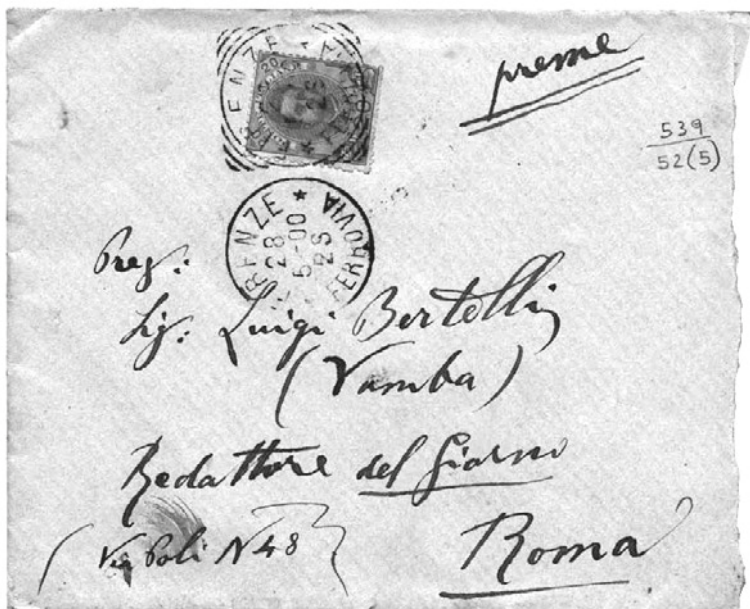 preme
539
52(5)
FIRENZE * FERROVIA
28
5-00
2S
Preg:
Sig: Luigi Bertelli
(Vamba)
Redattore del Giorno
(Via Poli N 48)
Roma